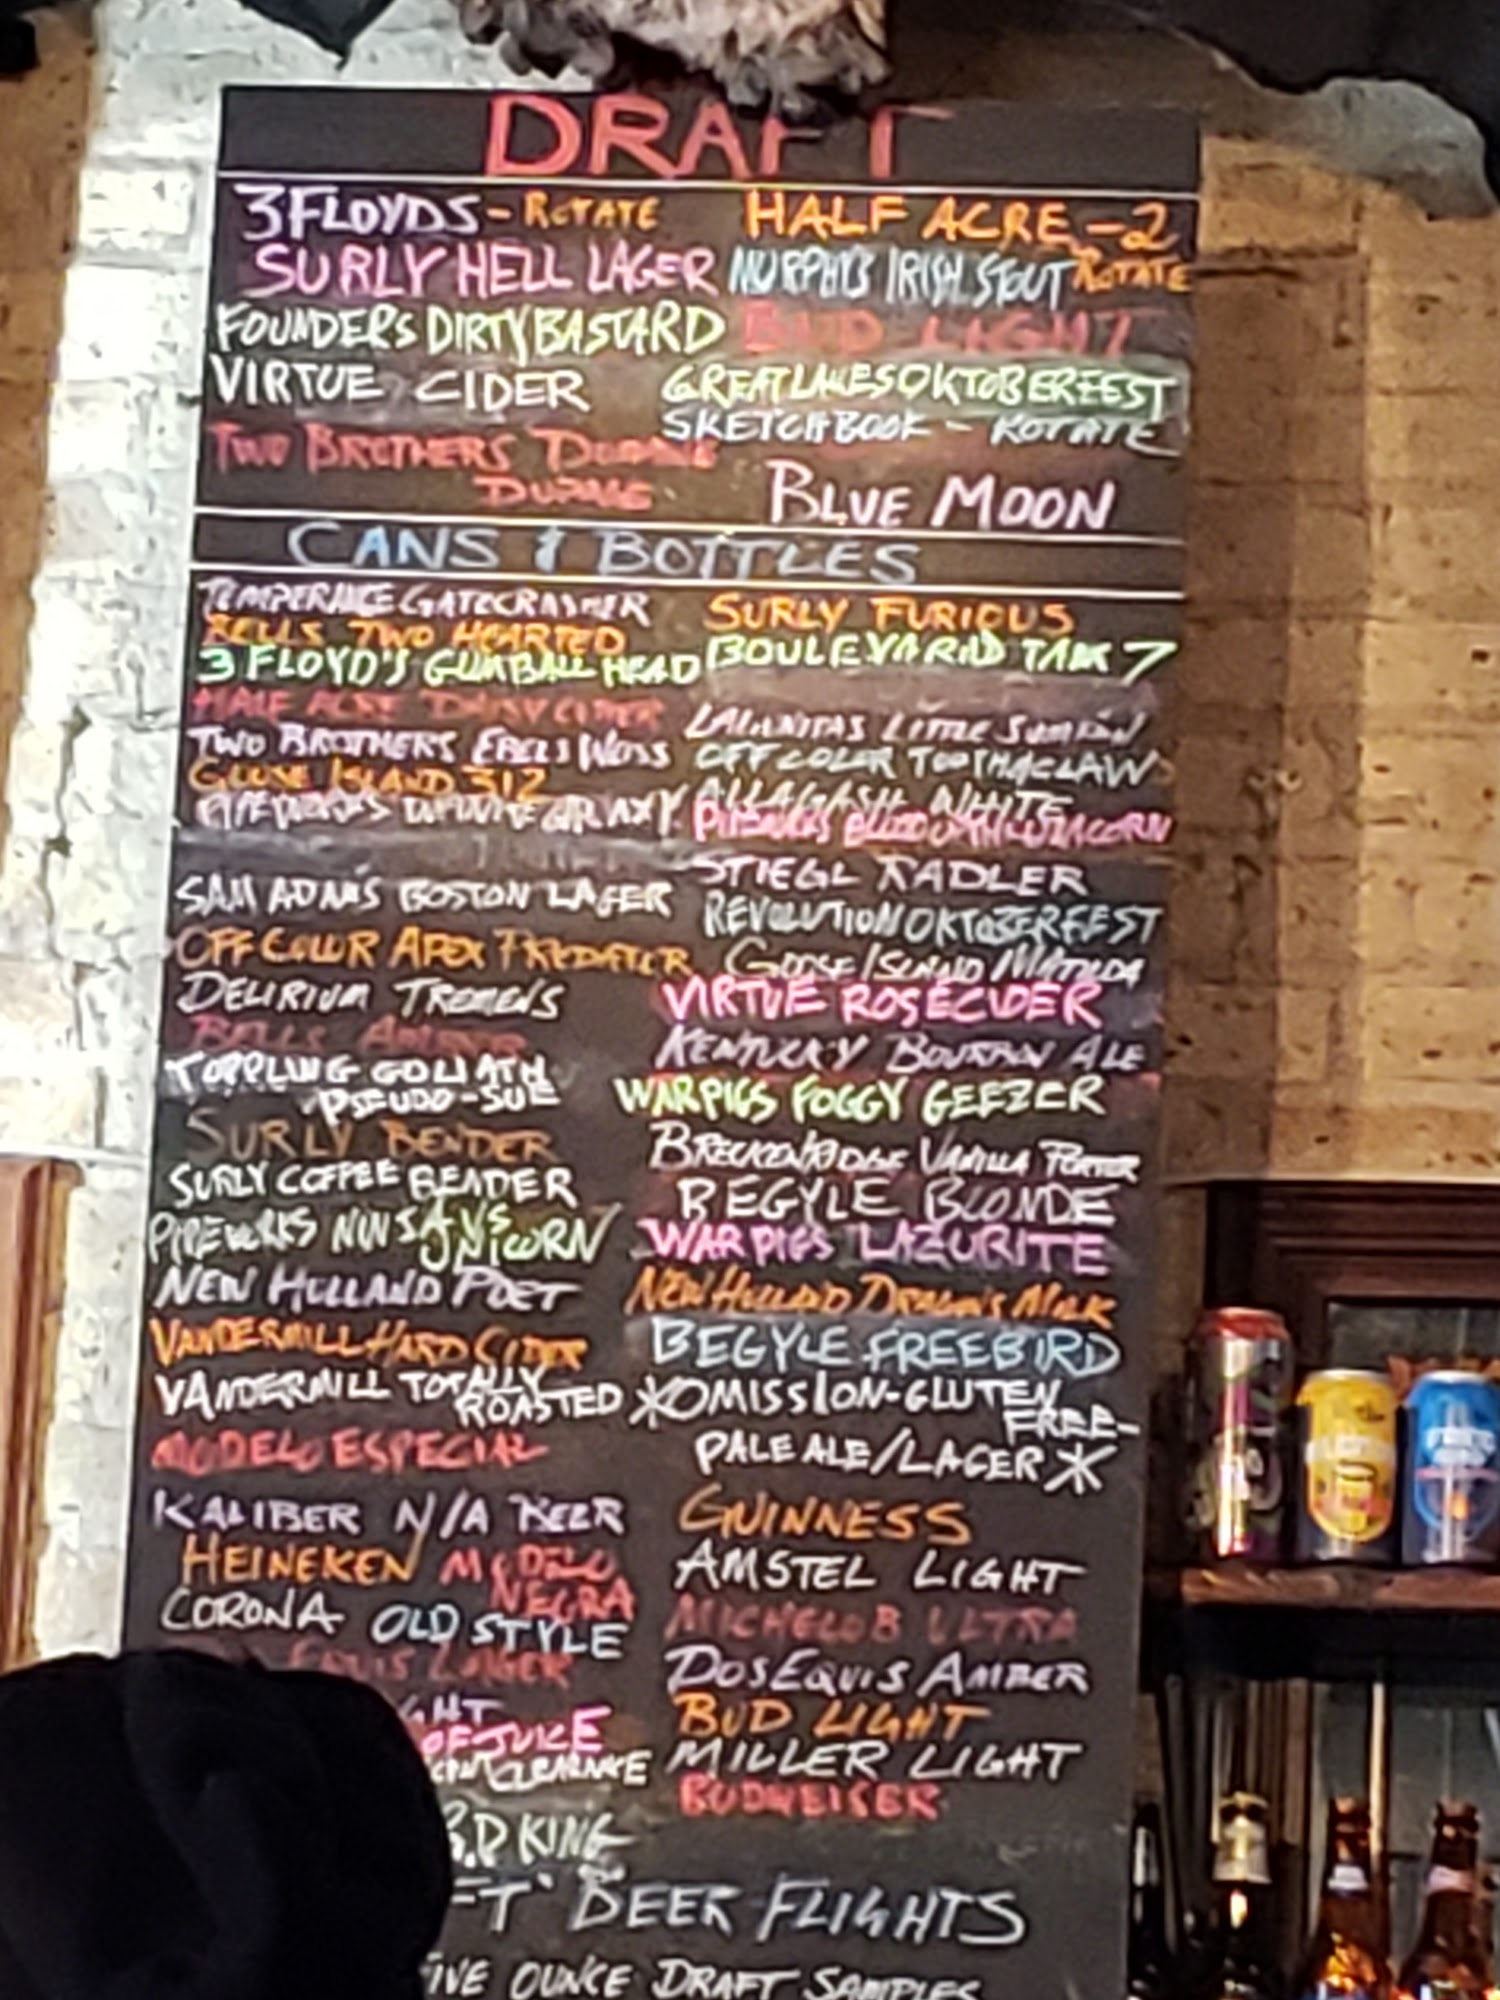 DRAFT
3 FLOYDS - ROTATE
SURLY HELL LAGER
FOUNDERS DIRTY BASTARD
VIRTUE CIDER
TWO BROTHERS DOMAINE
DUPAGE
HALF ACRE - 2
ROTATE
MURPHY'S IRISH STOUT
BUD LIGHT
GREAT LAKES OKTOBERFEST
SKETCHBOOK - ROTATE
BLUE MOON
CANS & BOTTLES
TEMPERANCE GATECRASHER
BELLS TWO HEARTED
3 FLOYD'S GUMBALL HEAD
HALF ACRE DAISY CUTTER
TWO BROTHERS EBELS WEISS
GOOSE ISLAND 312
PIPEWORKS INFINITE GALAXY
SAM ADAMS BOSTON LAGER
OFF COLOR APEX PREDATOR
DELIRIUM TREMENS
BELLS AMBER
TOPPLING GOLIATH
PSEUDO-SUE
SURLY BENDER
SURLY COFFEE BENDER
PIPEWORKS NINJA VS
UNICORN
NEW HOLLAND POET
VANDERMILL HARD CIDER
VANDERMILL TOTALLY
ROASTED
MODELO ESPECIAL
KALIBER N/A BEER
HEINEKEN MODELO
NEGRA
CORONA OLD STYLE
EQUIS LAGER
GHT
OF JUICE
CLEARANCE
B.D KING
SURLY FURIOUS
BOULEVARD TANK 7
LAGUNITAS LITTLE SUMPIN
OFF COLOR TOOTH & CLAW
ALLAGASH WHITE
PIPEWORKS BLOOD OF THE UNICORN
STIEGL RADLER
REVOLUTION OKTOBERFEST
GOOSE ISLAND MATILDA
VIRTUE ROSE CIDER
KENTUCKY BOURBON ALE
WARPIGS FOGGY GEEZER
BRECKENRIDGE VANILLA PORTER
BEGYLE BLONDE
WARPIGS LAZURITE
NEW HOLLAND DRAGONS MILK
BEGYLE FREEBIRD
*OMISSION-GLUTEN
FREE-
PALE ALE/LAGER*
GUINNESS
AMSTEL LIGHT
MICHELOB ULTRA
DOS EQUIS AMBER
BUD LIGHT
MILLER LIGHT
BUDWEISER
FT BEER FLIGHTS
IVE OUNCE DRAFT SAMPLES